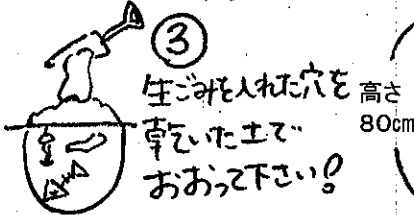 ③
生ごみを入れた穴を
乾いた土で
おおって下さい!
高さ
80cm